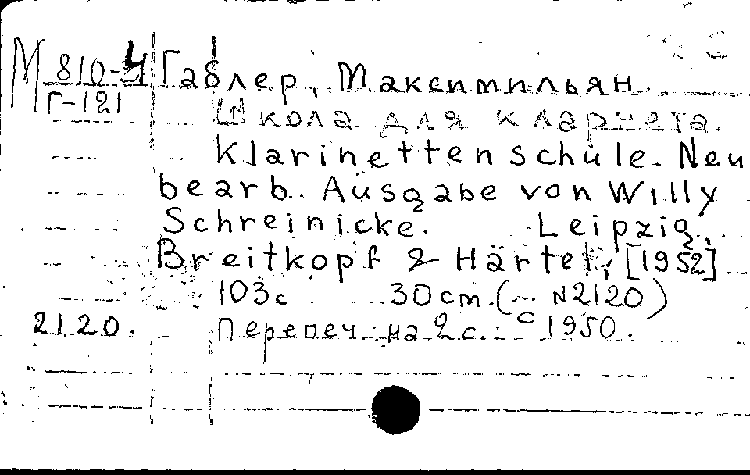 М 810-4 Габлер, Максимильян.
Г-121 Школа для кларнета.
Klarinettenschule. Neu
bearb. Ausgabe von Willy
Schreinicke. Leipzig,
Breitkopf & Härtel, [1952]
103с 30cm. (N2120)
2120. Перепеч. на 2 с.: с 1950.